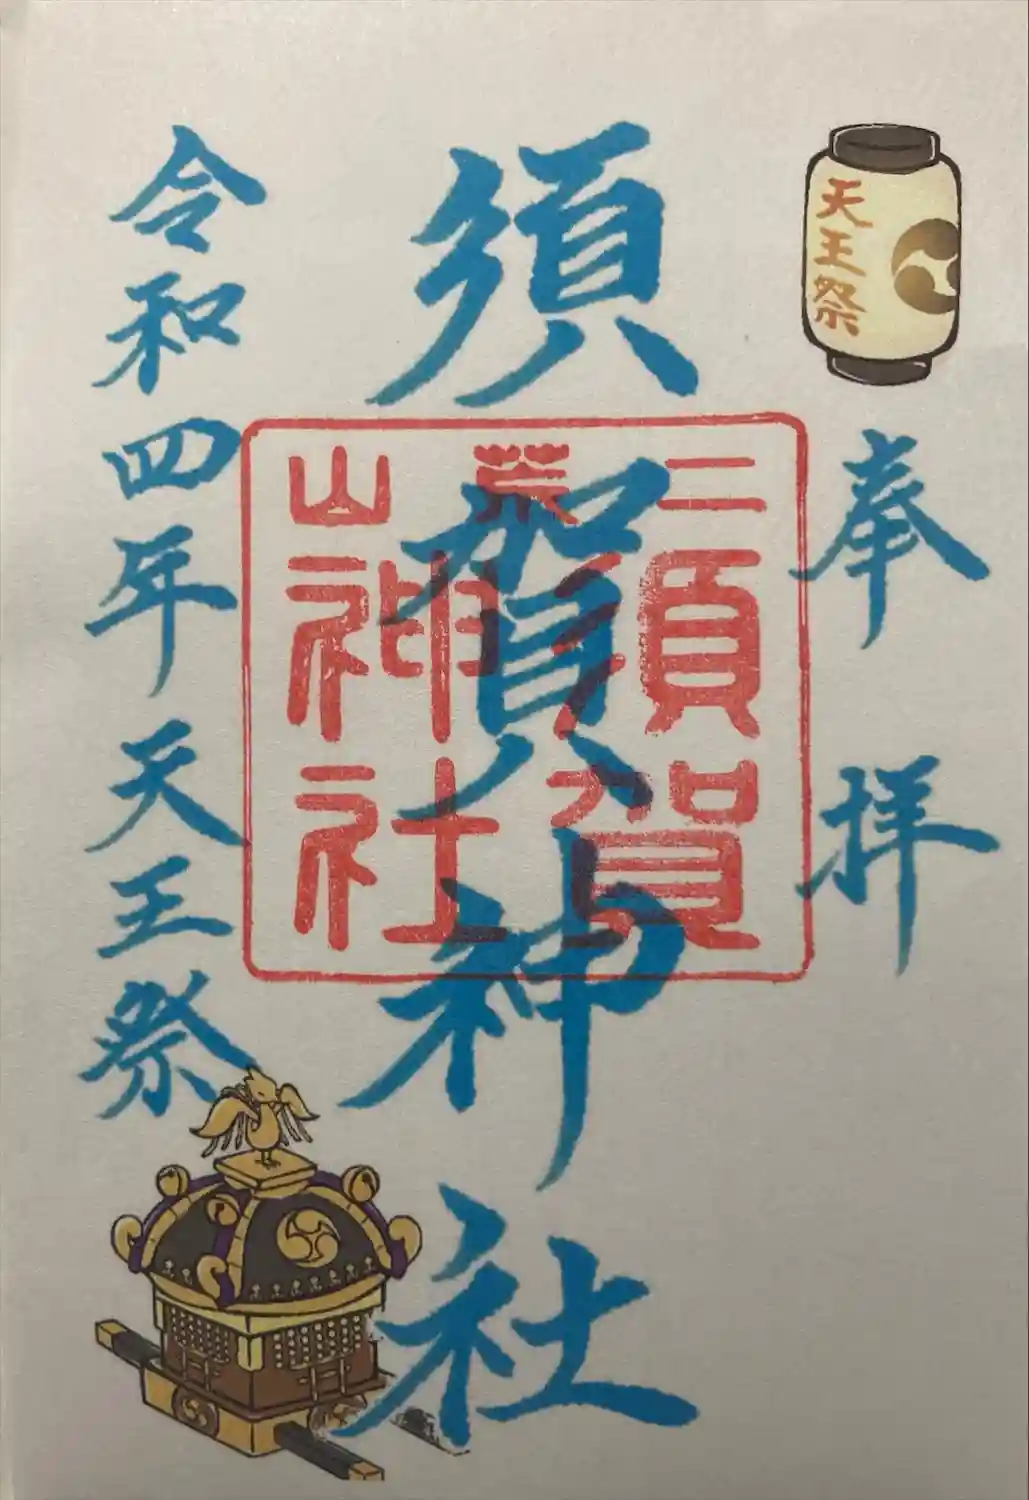 天王祭
奉拝
須賀神社
二荒山
須賀
神社
令和四年天王祭